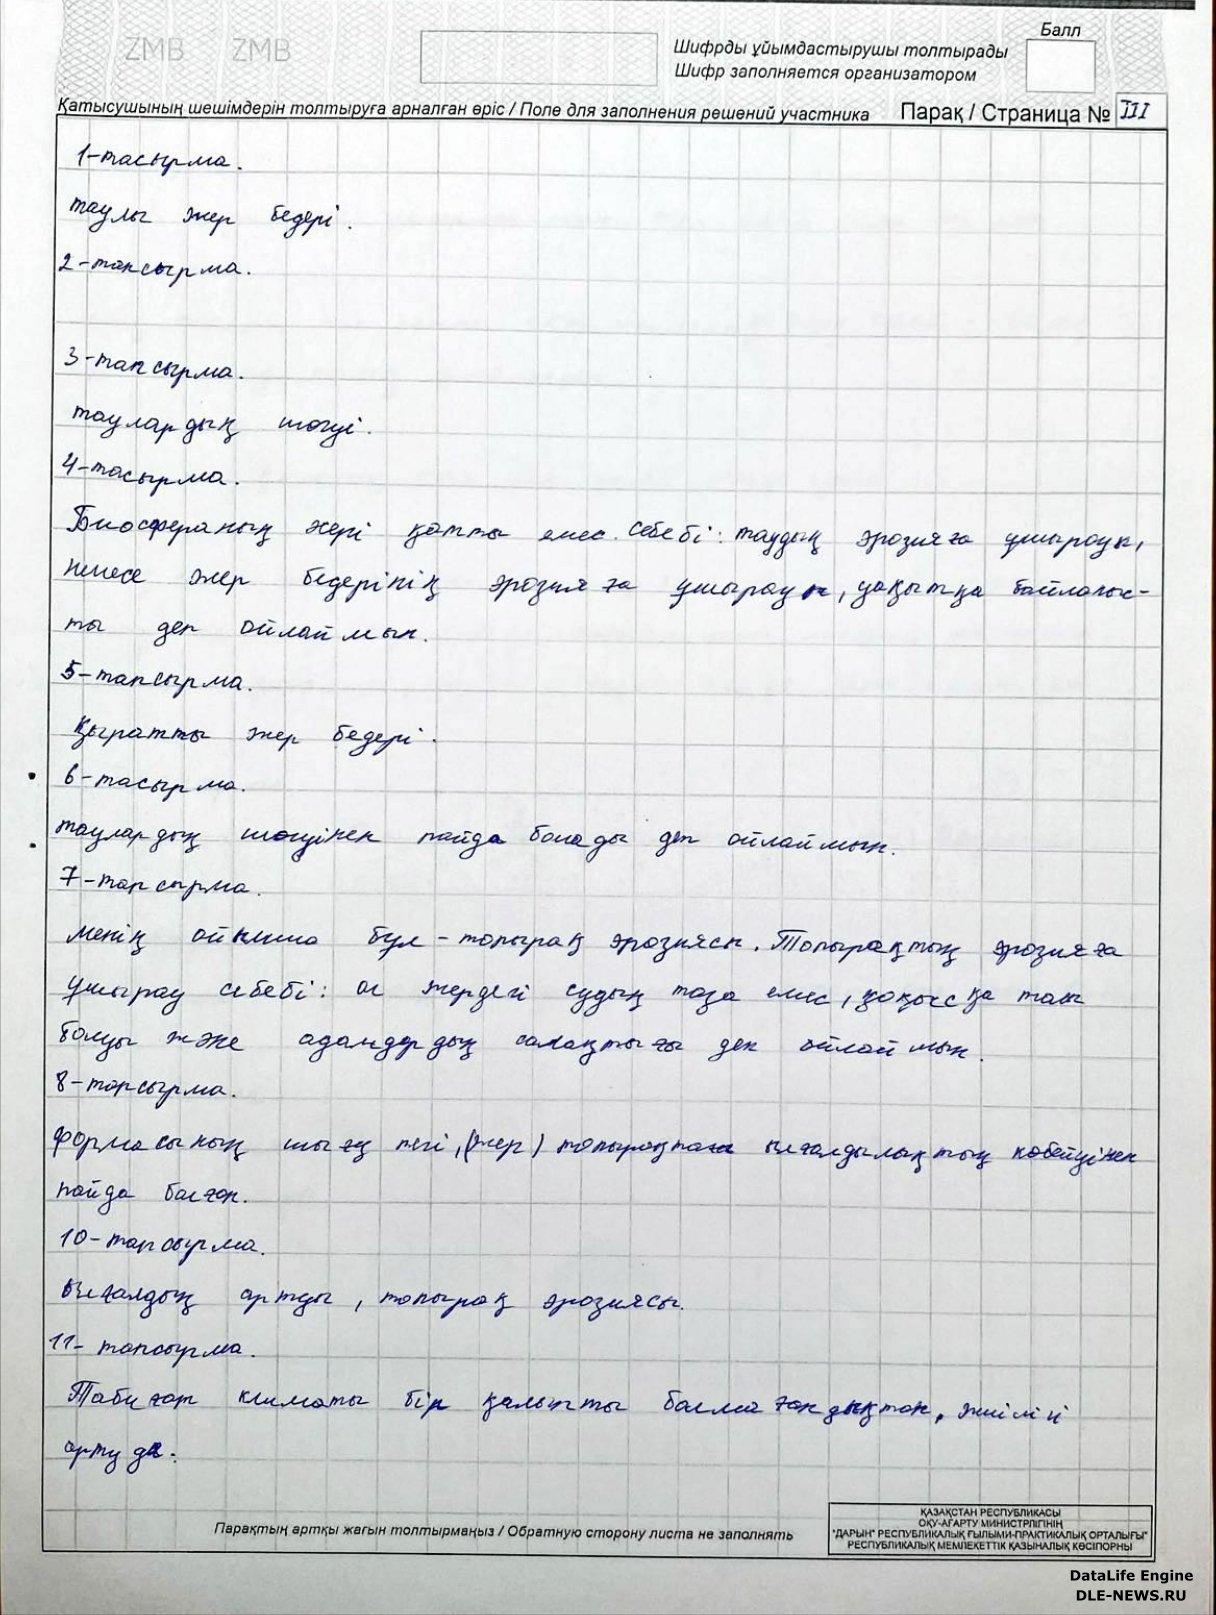 ZMB ZMB
Балл
Шифрды ұйымдастырушы толтырады
Шифр заполняется организатором
Қатысушының шешімдерін толтыруға арналған өріс / Поле для заполнения решений участника Парақ / Страница № III
1-тасырма.
таулы жер бедері.
2-тапсырма.
3-тапсырма.
таулардың шөгуі.
4-тасырма.
Биосфераның жері қатты емес себебі: таудың эрозияға ұшырауы,
немесе жер бедерінің эрозияға ұшырауы, уақытқа байланыс-
ты деп ойлаймын.
5-тапсырма.
Қыратты жер бедері.
6-тасырма.
таулардың шөгуінен пайда болады деп ойлаймын.
7-тапсырма.
менің ойымша бұл - топырақ эрозиясы. Топырақтың эрозияға
ұшырау себебі: ол жердегі судың таза емес, қоқысқа толы
болуы және адамдардың салақтығы деп ойлаймын.
8-тапсырма.
формасының шығу тегі, (жер) топырақтағы ылғалдылықтың көбеюінен
пайда болған.
10-тапсырма.
Ылғалдың артуы, топырақ эрозиясы.
11-тапсырма.
Табиғат климаты бір қалыпты болмағандықтан, жиілігі
артуда.
Парақтың артқы жағын толтырмаңыз / Обратную сторону листа не заполнять
ҚАЗАҚСТАН РЕСПУБЛИКАСЫ
ОҚУ-АҒАРТУ МИНИСТРЛІГІНІҢ
"ДАРЫН" РЕСПУБЛИКАЛЫҚ ҒЫЛЫМИ-ПРАКТИКАЛЫҚ ОРТАЛЫҒЫ"
РЕСПУБЛИКАЛЫҚ МЕМЛЕКЕТТІК ҚАЗЫНАЛЫҚ КӘСІПОРНЫ
DataLife Engine
DLE-NEWS.RU